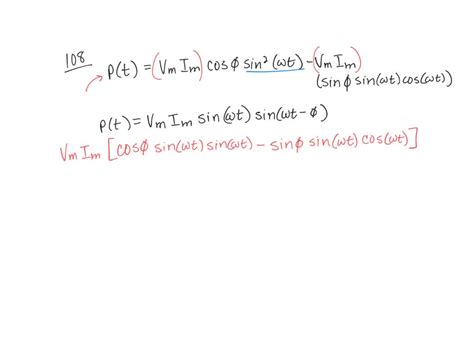 108
p(t) = (Vm Im) cos ϕ sin² (ωt) - (Vm Im)
(sin ϕ sin(ωt) cos(ωt))
p(t) = Vm Im sin(ωt) sin(ωt - ϕ)
Vm Im [cos ϕ sin(ωt) sin(ωt) - sin ϕ sin(ωt) cos(ωt)]